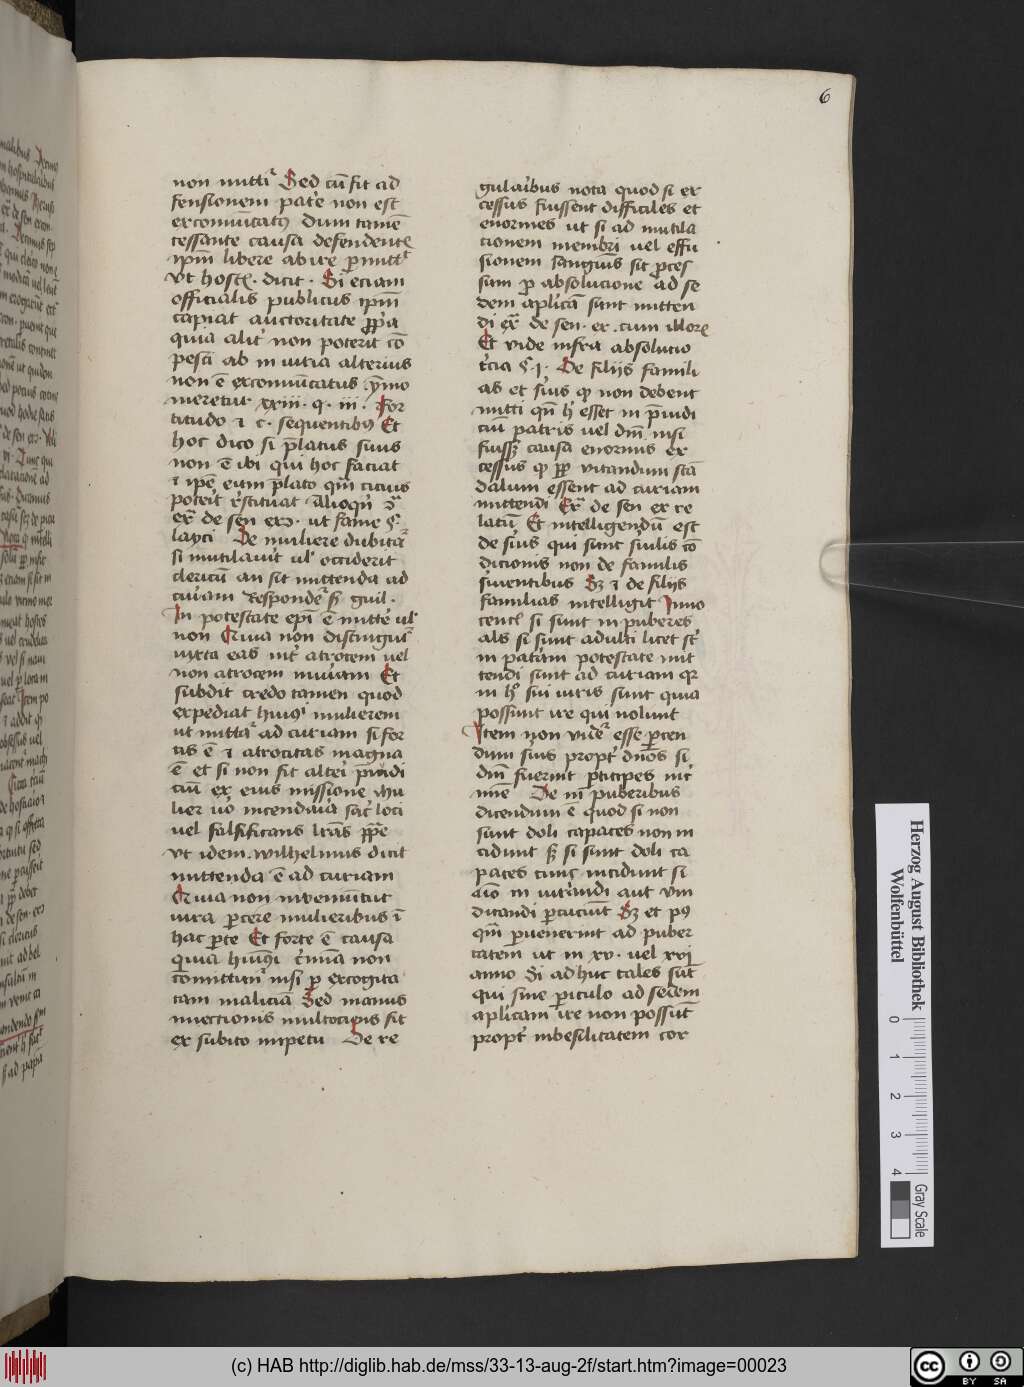 6
non mitti Sed cū sit ad
fensionem patrē non est
excomunicatꝯ dum tamē
cessante causa defendentē
ipm̄ libere abire ꝑmittit
Vt host̄. dicit. Si etiam
officialis publicus ipm̄
capiat auctoritate ꝓp̄a
quia alit̄ non poterit cō
pesci ab iniuria alterius
non ē excomūicatus ymo
meretur xxiii. q. iii. For
titudo ⁊ c. sequentibꝯ Et
hoc dico si p̄latus suus
non ē ibi qui hoc faciat
⁊ ipē eum p̄lato qm̄ cicius
poterit restituat alioqn̄
ex̄ de sen exc. ut fame §
layci De muliere dubitat̄
si mutilauit ul̓ occiderit
clericū an sit mittenda ad
curiam Respondet guil.
In potestate epi ē mitte ul̓
non Cā mā non distinguit̄
iuxta eas int̄ atrocem vel
non atrocem iniuriam Et
subdit credo tamen quod
expediat huiꝰmodi mulierem
ut mittat̄ ad curiam si for
tis ē ⁊ atrocitas magna
ē et si non sit alteri p̄iudi
ciū ex eius missione Mu
lier uō incendiaria sac̄ loci
uel falsificans lrās pp̄e
Vt idem Wilhelmus dicit
mittenda ē ad curiam
Quia non inueniūtur
iura ꝑcere mulieribus ī
hac ꝑte Et forte ē causa
quia huiꝰmodi c̄mīa non
cōmittunt̄ nisi ꝑ excogita
tam maliciā Sed manus
iniectionis multociens fit
ex subito impetu De re
gularibus nota quod si ex
cessus fuissent difficiles et
enormes ut si ad mutila
cionem membri uel effu
sionem sanguīs sit ꝓces
sum ꝓ absolucione ad se
dem aplicā sunt mitten
di ex̄ de sen. ex. cum illorꝫ
Et vide infra absolucio
t̄cia §. i. De filijs famili
as et suis ꝙ non debent
mitti qn̄ h̄ esset in p̄iudi
ciū patris uel dm̄ nisi
fuissꝫ causa enormis ex
cessus ꝙ ꝓp̄ vitandum scā
dalum essent ad curiam
mittendi Ex̄ de sen ex re
latū Et intelligendū est
de suis qui sunt s̄uilis cō
dicionis non de familis
s̄uientibus Sꝫ ⁊ de filijs
familias intelligit Inno
cenc̄ si sunt in puberes
als si sunt adulti licet sit̄
in patriam potestate mit
tendi sunt ad curiam qꝛ
in h̄ sui iuris sunt quia
possunt ire qui nolunt
Item non videt̄ esse ꝑcen
dum suis propt̄ dnōs si
dm̄ fuerint ꝑticipes int̄
mīe De in puberibus
dicendum ē quod si non
sunt doli capaces non in
cidunt sꝫ si sunt doli ca
paces tunc incidunt si
aīo iniurandi aut vin
dicandi ꝑcuciūt Sꝫ et pꝰ
qm̄ ꝑuenerint ad puber
tatem ut in xv. uel xvi
anno d̄i adhuc tales sunt
qui sine ꝑiculo ad sedem
aplicam ire non possūt
propt̄ inbesilitatem cor
Herzog August Bibliothek
Wolfenbüttel
0 1 2 3 4
Gray Scale
(c) HAB http://diglib.hab.de/mss/33-13-aug-2f/start.htm?image=00023
cc BY SA